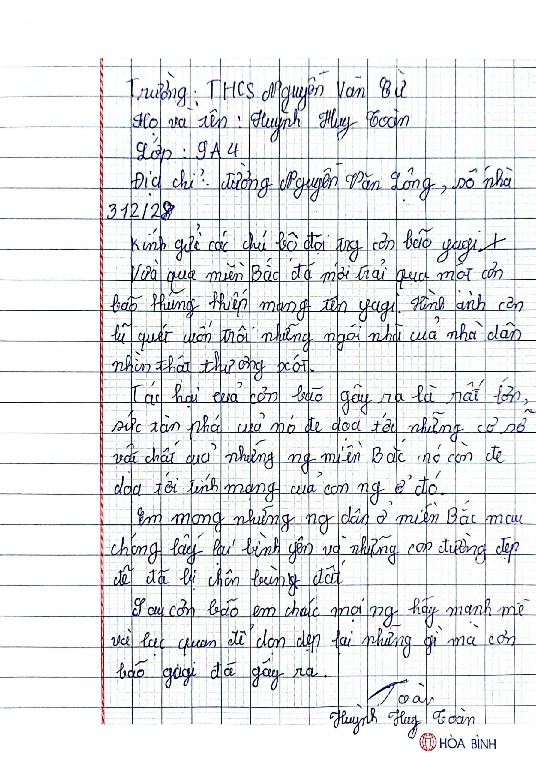 Trường: THCS Nguyễn Văn Bứ
Họ và tên: Huỳnh Huy Toàn
Lớp: 9A4
Địa chỉ: đường Nguyễn Văn Lộng, số nhà
312/28
Kính gửi các chú bộ đội tng cơn bão yagi
Vừa qua miền Bắc đã mới trải qua một cơn
bão khủng khiếp mang tên yagi. Hình ảnh cơn
lũ quét cuốn trôi những ngôi nhà của nhà dân
nhìn thật thương xót.
Tác hại của cơn bão gây ra là rất lớn,
sức tàn phá của nó đe dọa tới những cơ sở
vật chất của những ng miền Bắc nó còn đe
dọa tới tính mạng của con ng ở đó.
Em mong những ng dân ở miền Bắc mau
chóng lấy lại bình yên và những con đường đẹp
đẽ đã bị chôn bùng đất
Sau cơn bão em chúc mọi ng hãy mạnh mẽ
và lạc quan để dọn dẹp lại những gì mà cơn
bão yagi đã gây ra.
Toàn
Huỳnh Huy Toàn
HÒA BÌNH